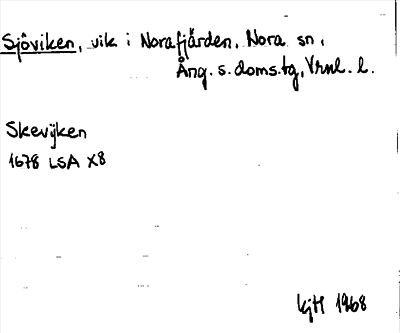 Sjöviken, vik i Norafjärden, Nora sn,
Ång. s. doms.tg, Vrnl. l.
Skevijken
1678 LSA X8
KjH 1968